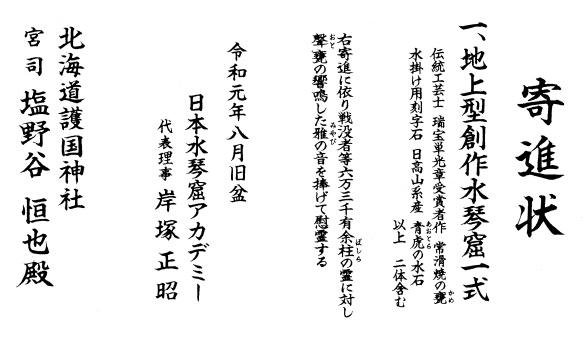 寄進状
一、地上型創作水琴窟一式
伝統工芸士 瑞宝単光章受賞者作 常滑焼の甕
水掛け用刻字石 日高山系産 青虎の水石
以上 二体含む
右寄進に依り戦没者等六万三千有余柱の霊に対し
聲甕の響鳴した雅の音を捧げて慰霊する
令和元年八月旧盆
日本水琴窟アカデミー
代表理事 岸塚正昭
北海道護国神社
宮司 塩野谷 恒也殿